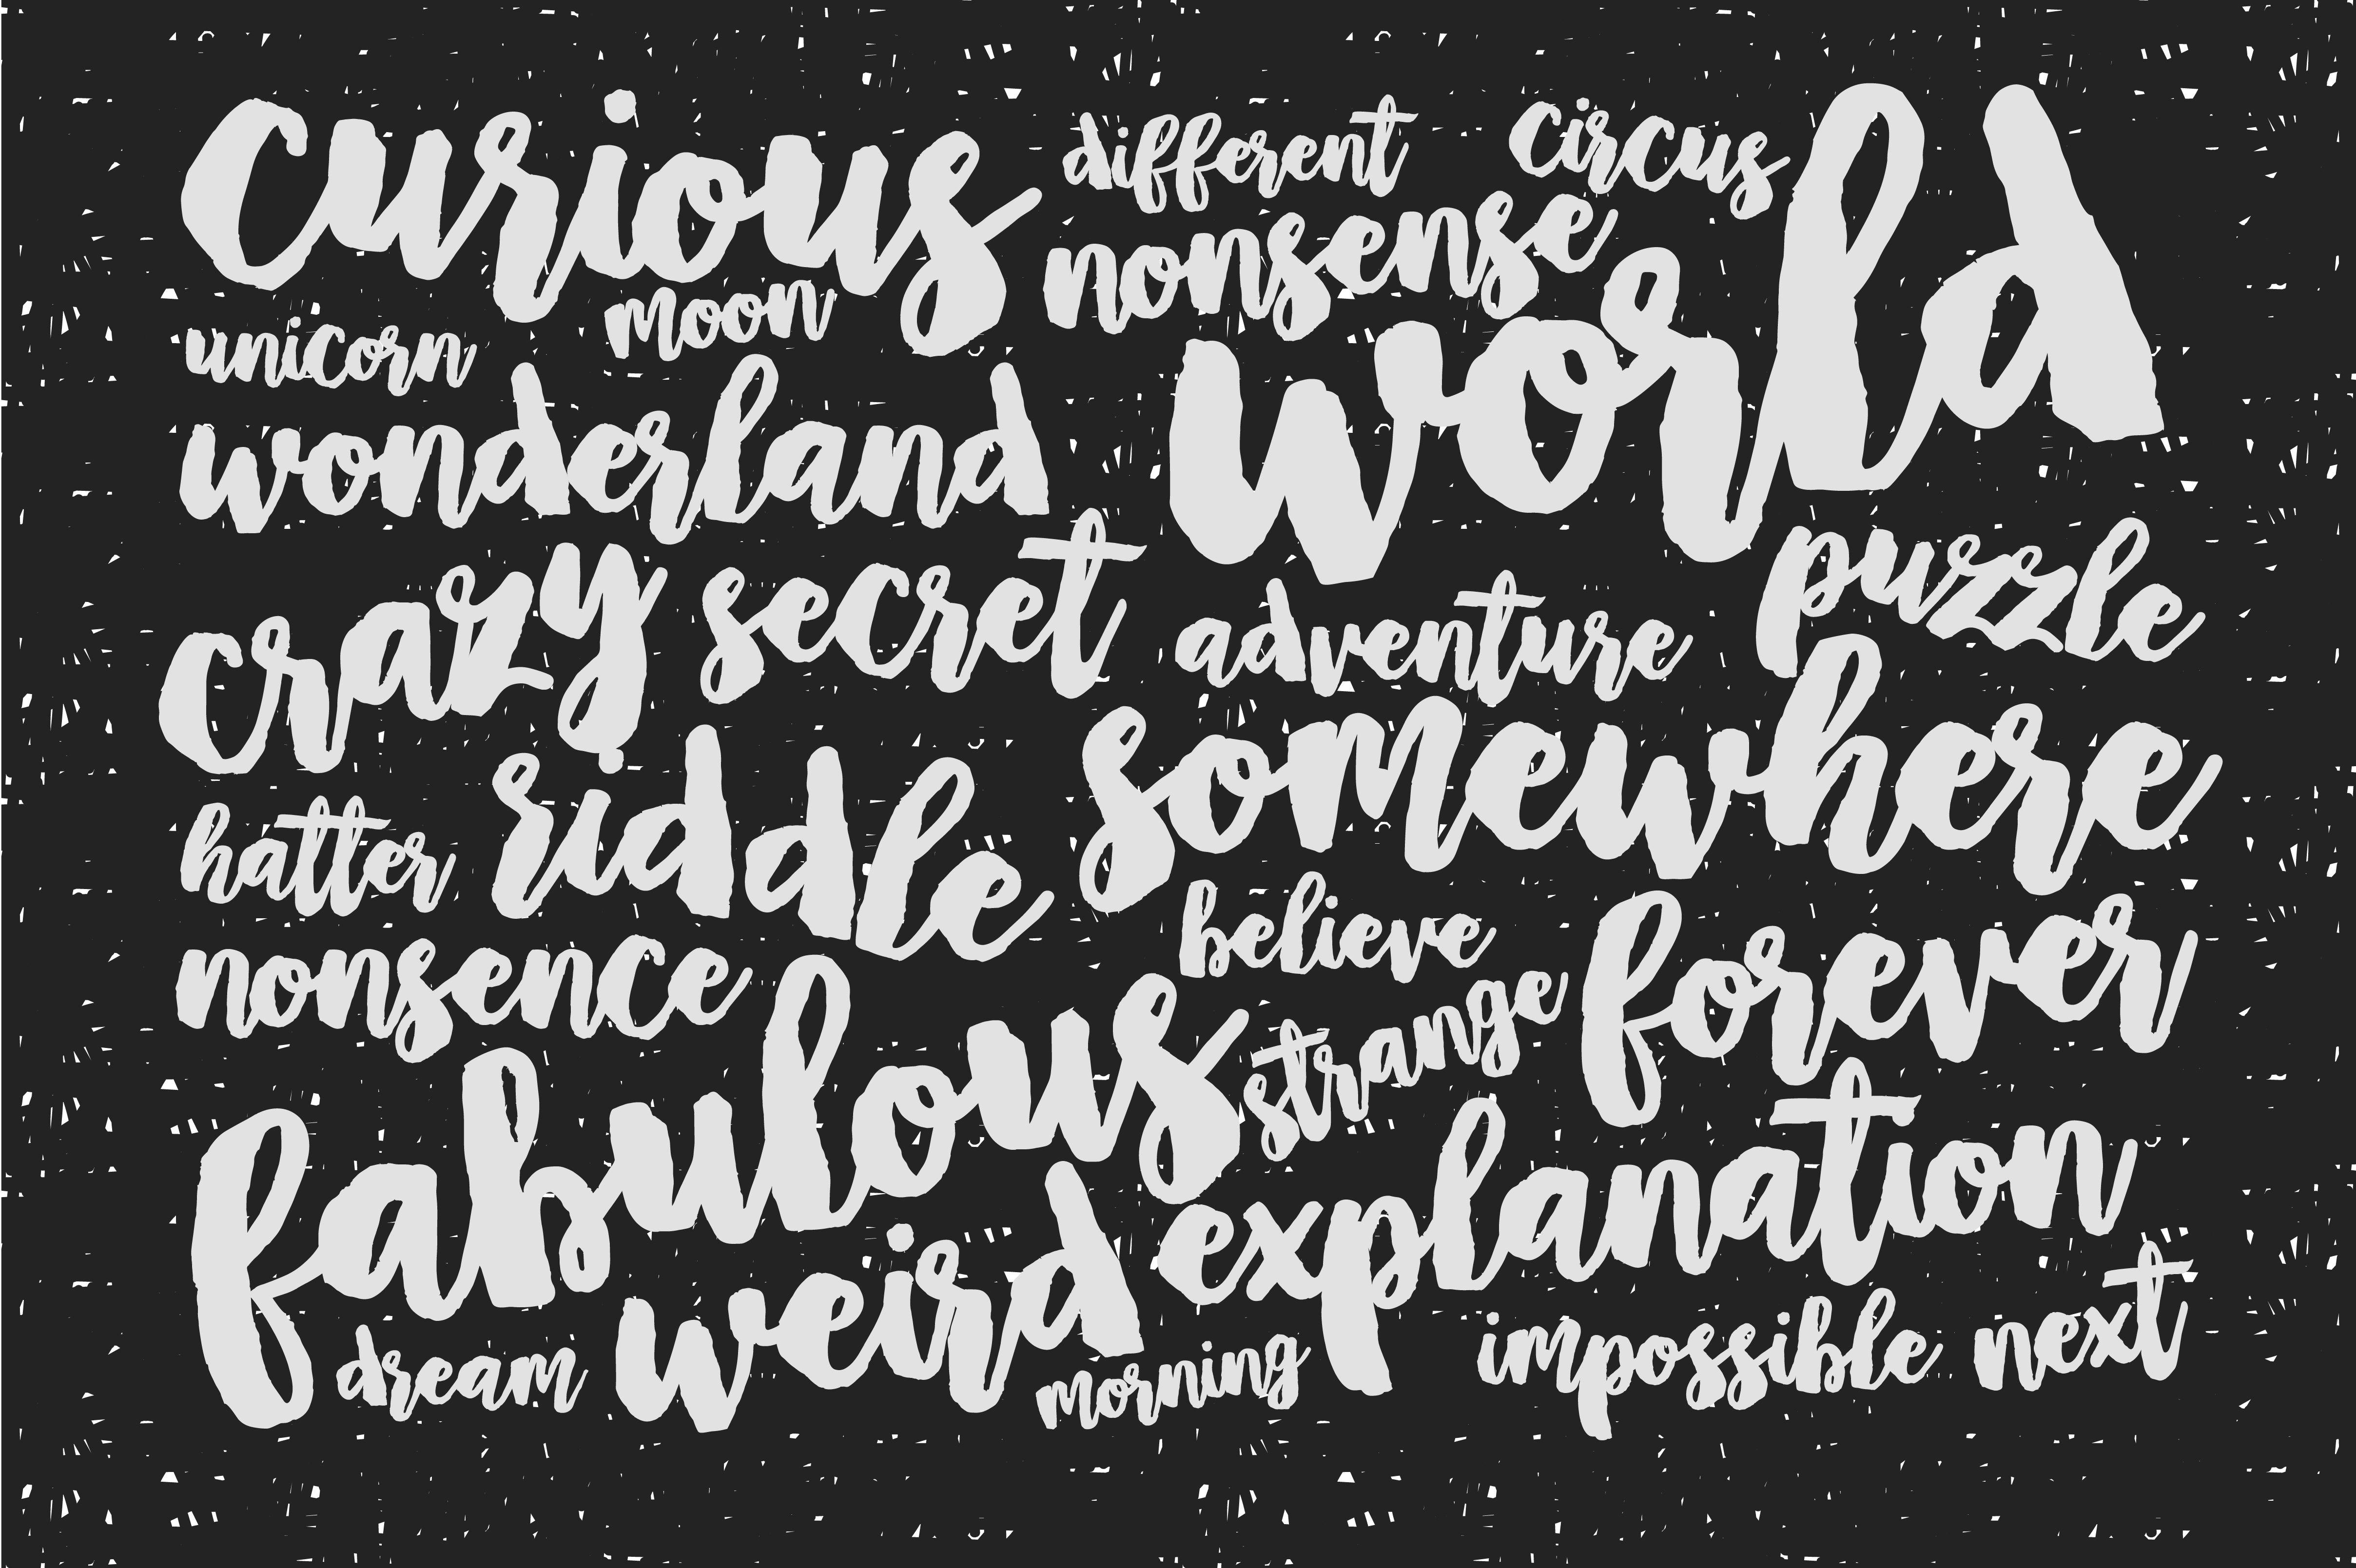 curious
different
circus
moon
nonsense
world
unicorn
wonderland
crazy
secret
adventure
puzzle
hatter
riddle
somewhere
believe
nonsence
strange
forever
fabulous
weird
explanation
dream
morning
impossible
next